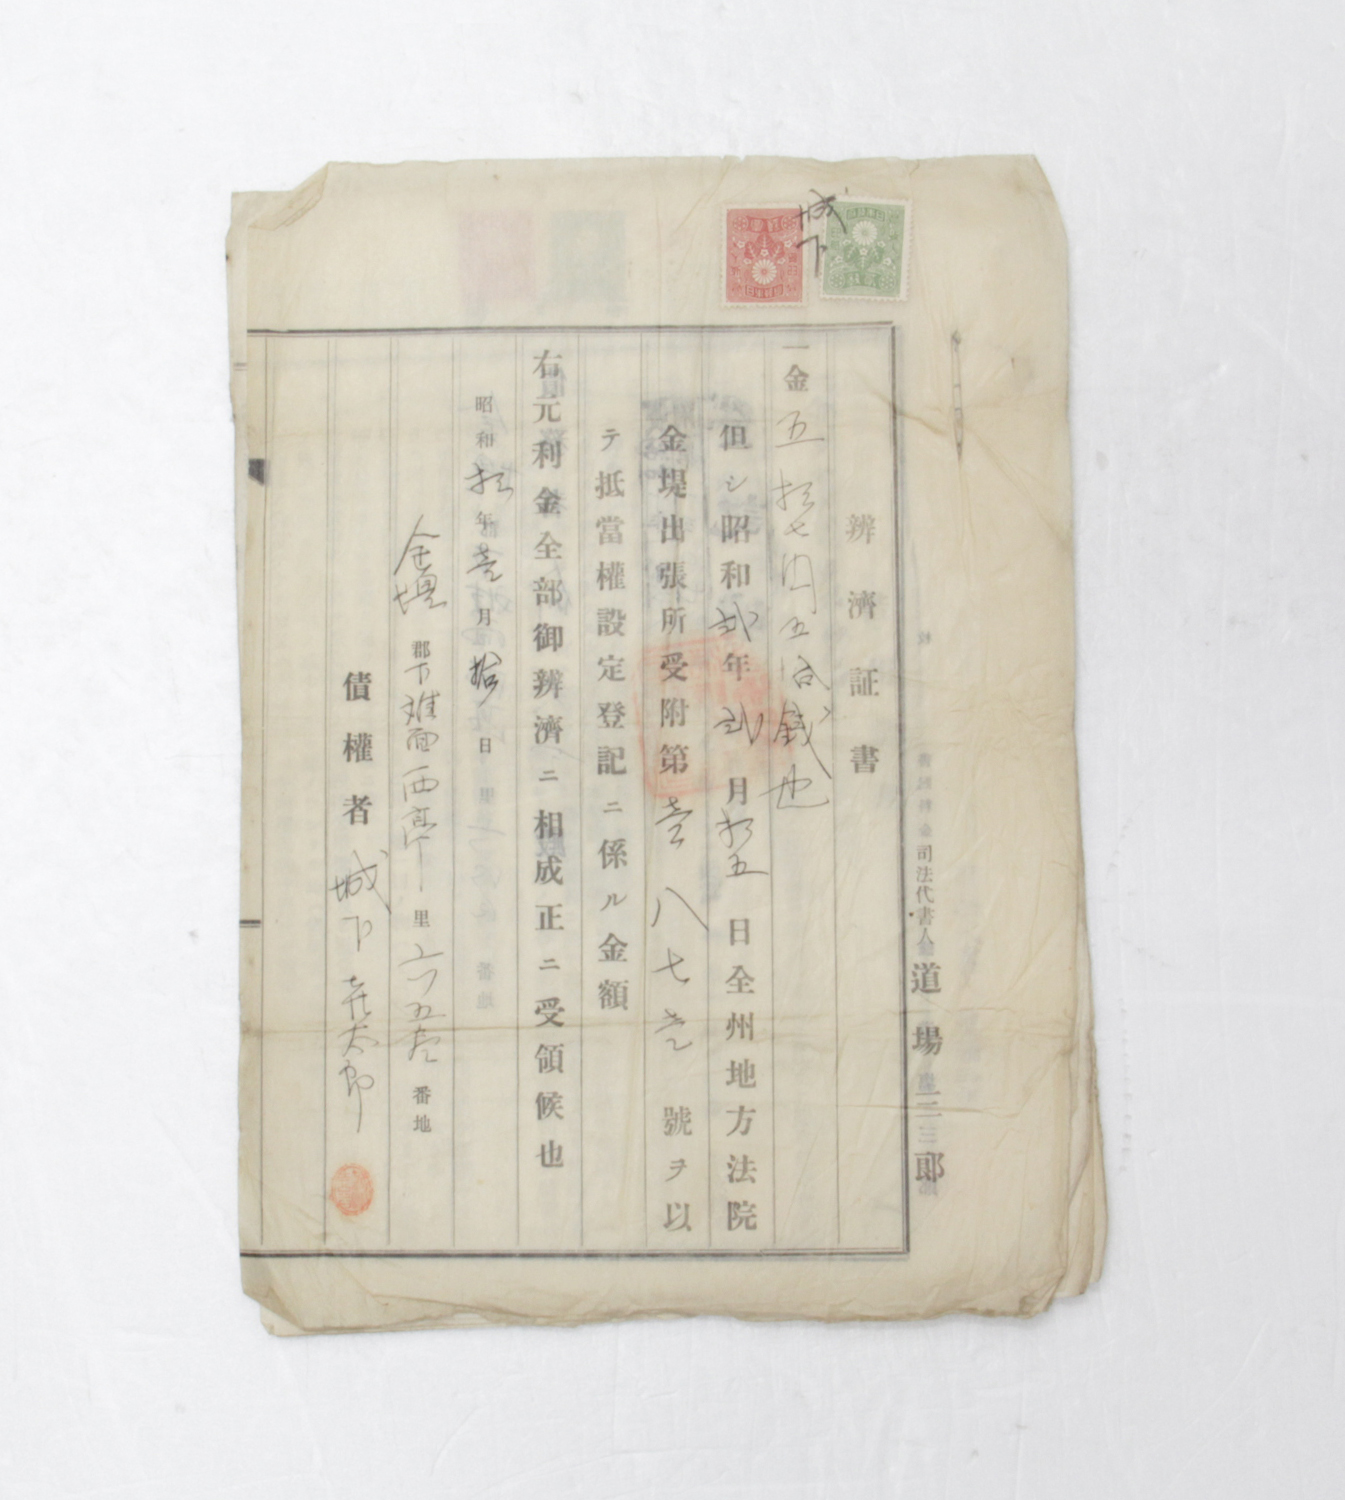 城下
司法代書人 道場三郎
辨濟証書
一金五拾七円五拾銭也
但シ昭和弐年弐月拾五日全州地方法院
金堤出張所受附第壱八七壱號ヲ以
テ抵當權設定登記ニ係ル金額
右元利金全部御辨濟ニ相成正ニ受領候也
昭和拾年壱月拾日
金堤郡下 面西 里六五 番地
債權者 城下 太郎